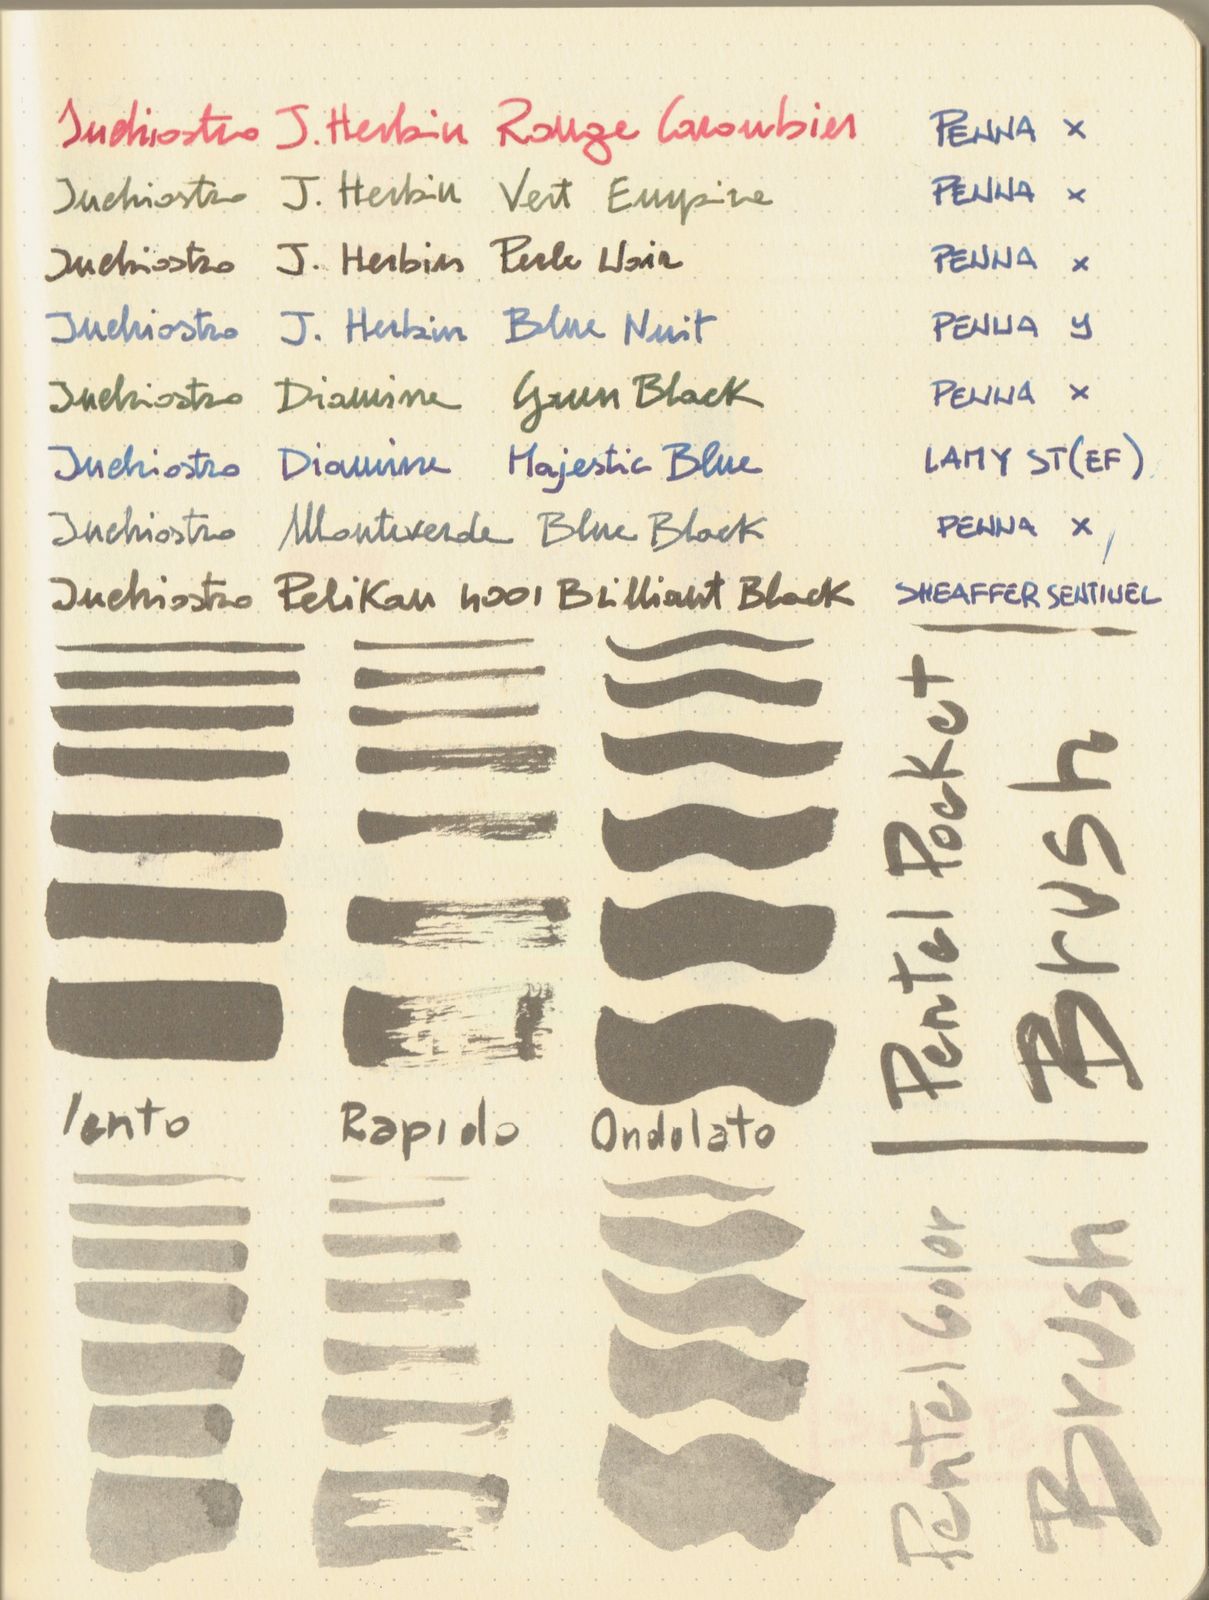 Inchiostro J. Herbin Rouge Caroubier PENNA x
Inchiostro J. Herbin Vert Empire PENNA x
Inchiostro J. Herbin Perle Noir PENNA x
Inchiostro J. Herbin Blue Nuit PENNA y
Inchiostro Diamine Green Black PENNA x
Inchiostro Diamine Majestic Blue LAMY ST(EF)
Inchiostro Monteverde Blue Black PENNA x
Inchiostro Pelikan 4001 Brilliant Black SHEAFFER SENTINEL
Pentel Pocket
Brush
lento Rapido Ondolato
Pentel Color
Brush